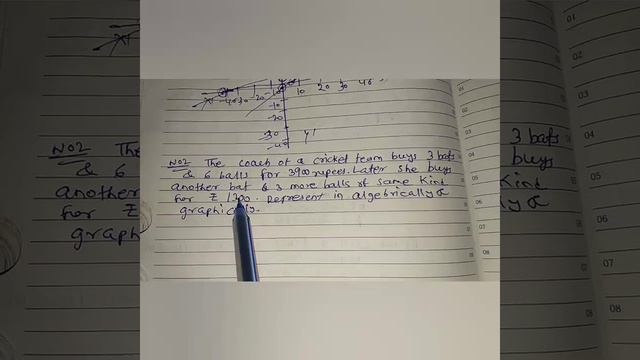 10 20 30 40
-10
-20
-30
-40
y'
NO2 The coach of a cricket team buys 3 bats
& 6 balls for 3900 rupees. Later she buys
another bat & 3 more balls of same kind
for ₹ 1300. Represent in algebrically &
graphically.